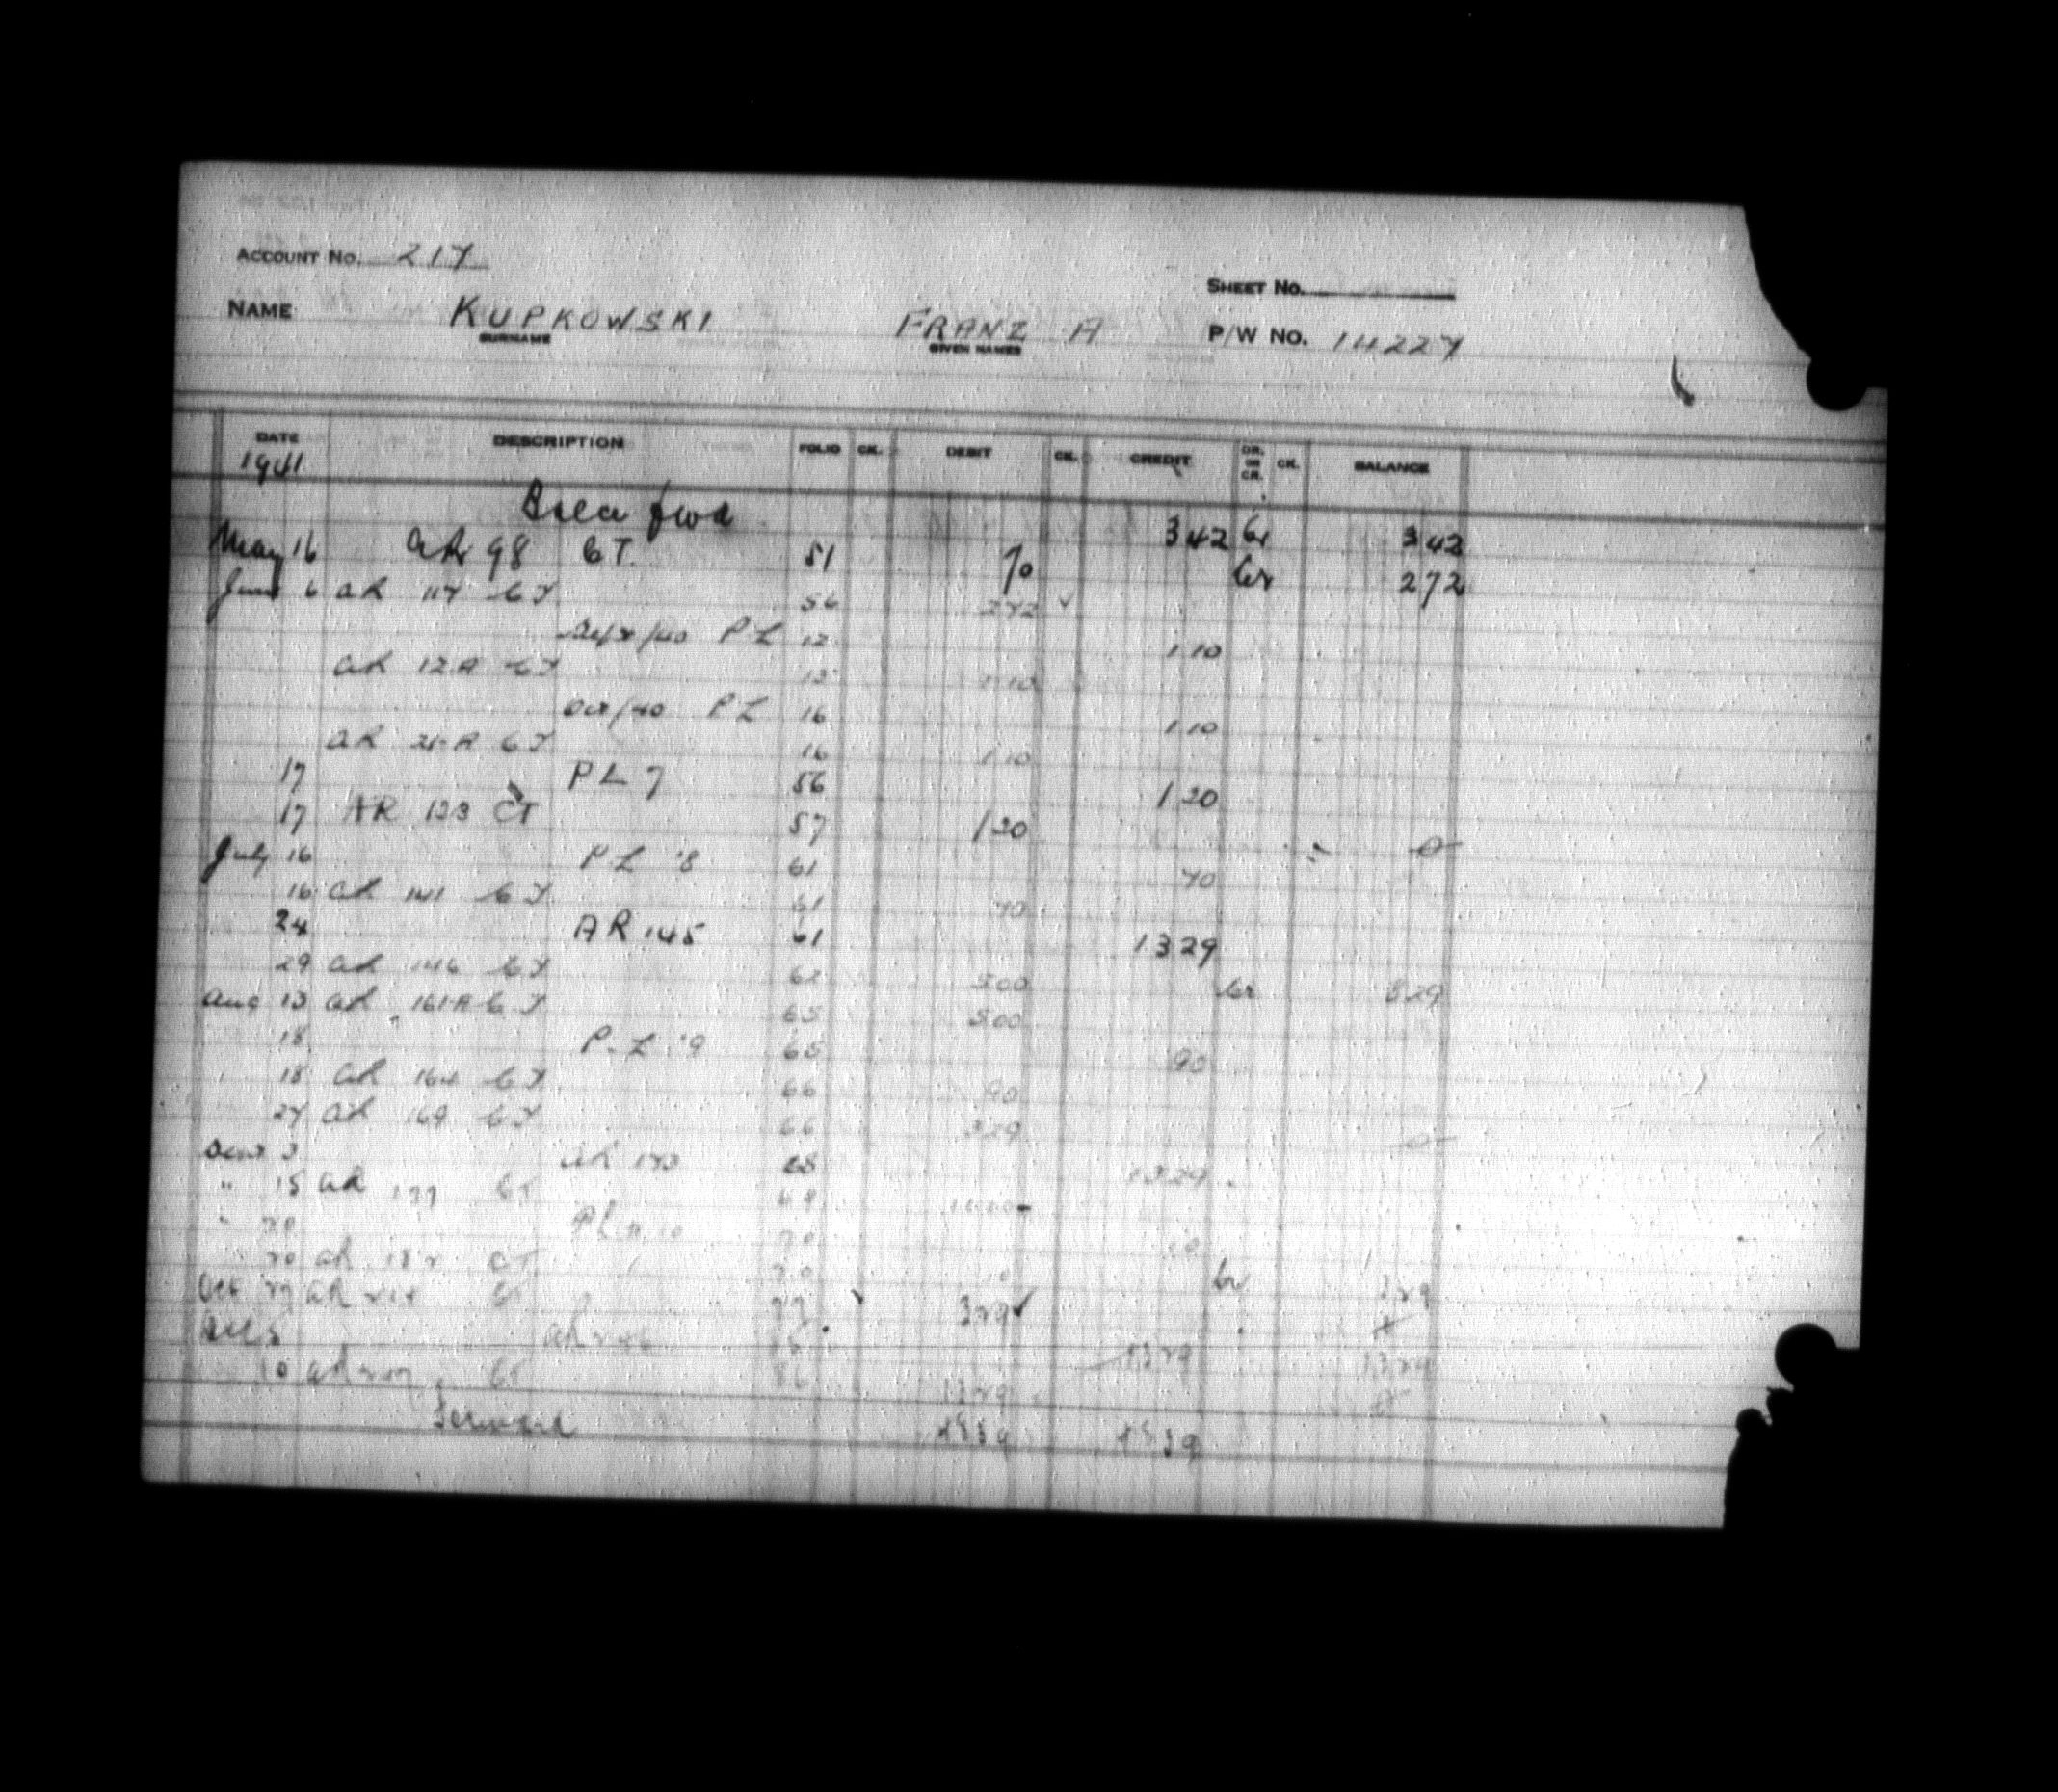 ACCOUNT NO. 217
SHEET NO.
NAME KUPKOWSKI FRANZ A P/W NO. 14227
SURNAME GIVEN NAMES
DATE DESCRIPTION FOLIO CK. DEBIT CK. CREDIT DR. OR CR. CK. BALANCE
1941
fwd 342 Cr 342
May 16 AR 98 CT. 51 70 Cr 272
June 6 AR 117 CT 56 272
/40 PL 12 1 10
AR 12A CT 12 1 10
Oct/40 PL 16 1 10
AR 21A CT 16 1 10
17 PL 7 56 1 20
17 AR 123 CT 57 1 20 0
July 16 PL '8 61 70
16 AR 141 CT 61 70
24 AR 145 61 13 29
29 AR 146 CT 62 500 Cr 829
Aug 13 AR 161A CT 65 500
18 P.L '9 65 90
18 AR 164 CT 66 90
27 AR 169 CT 66 329 0
3 AR 173 68 1329
" 15 AR 177 CT 69 1000
" 20 PL 10 70 10
20 AR CT 70 10 Cr 329
Oct 27 AR CT 77 329
AR 1329 1329
10 AR CT 86 1329
Forward